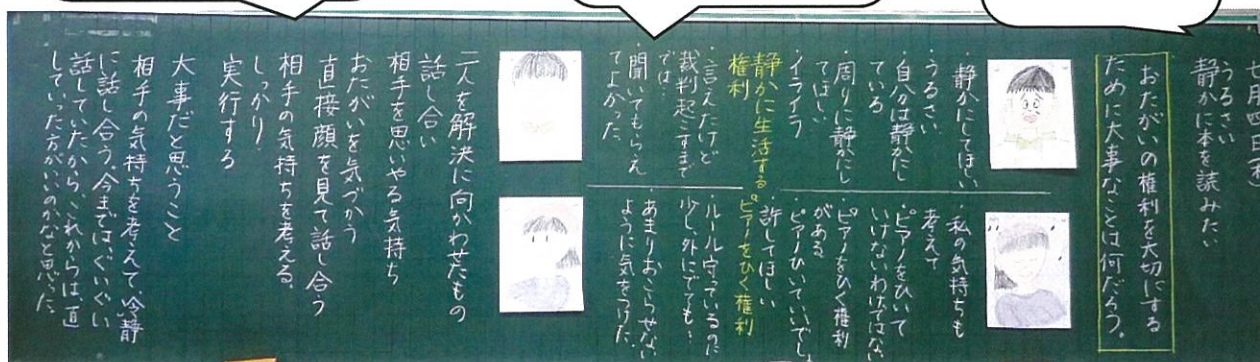 うるさい
静かに本を読みたい
おたがいの権利を大切にする
ために大事なことは何だろう。
静かにしてほしい
・うるさい
・自分は静かにし
ている
・周りに静かにし
てほしい
・イライラ
静かに生活する
権利
・言えたけど
裁判起こすまで
では…
・聞いてもらえ
てよかった
・私の気持ちも
考えて
・ピアノをひいて
いけないわけではない
・ピアノをひく権利
がある
・ピアノひいていいでしょ
・許してほしい
ピアノをひく権利
・ルール守っているのに
少し、外にでても…
・あまりおこらせない
ように気をつけた
二人を解決に向かわせたもの
話し合い
相手を思いやる気持ち
おたがいを気づかう
直接顔を見て話し合う
相手の気持ちを考える
しっかり
実行する
大事だと思うこと
相手の気持ちを考えて、冷静
に話し合う。今まではぐいぐい
話していたから、これからは直
していった方がいいのかなと思った